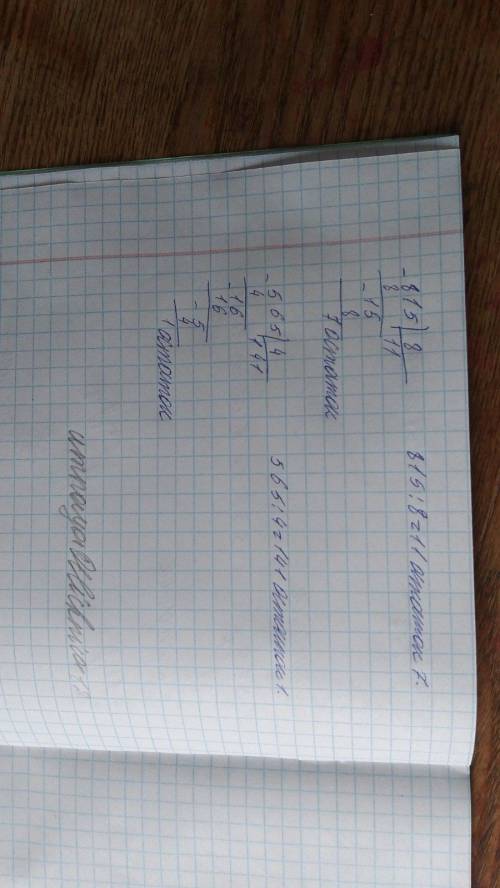 -815|8 815:8=11 остаток 7.
8 11
-15
8
7 остаток
-565|4 565:4=141 остаток 1.
4 141
-16
16
-5
4
1 остаток